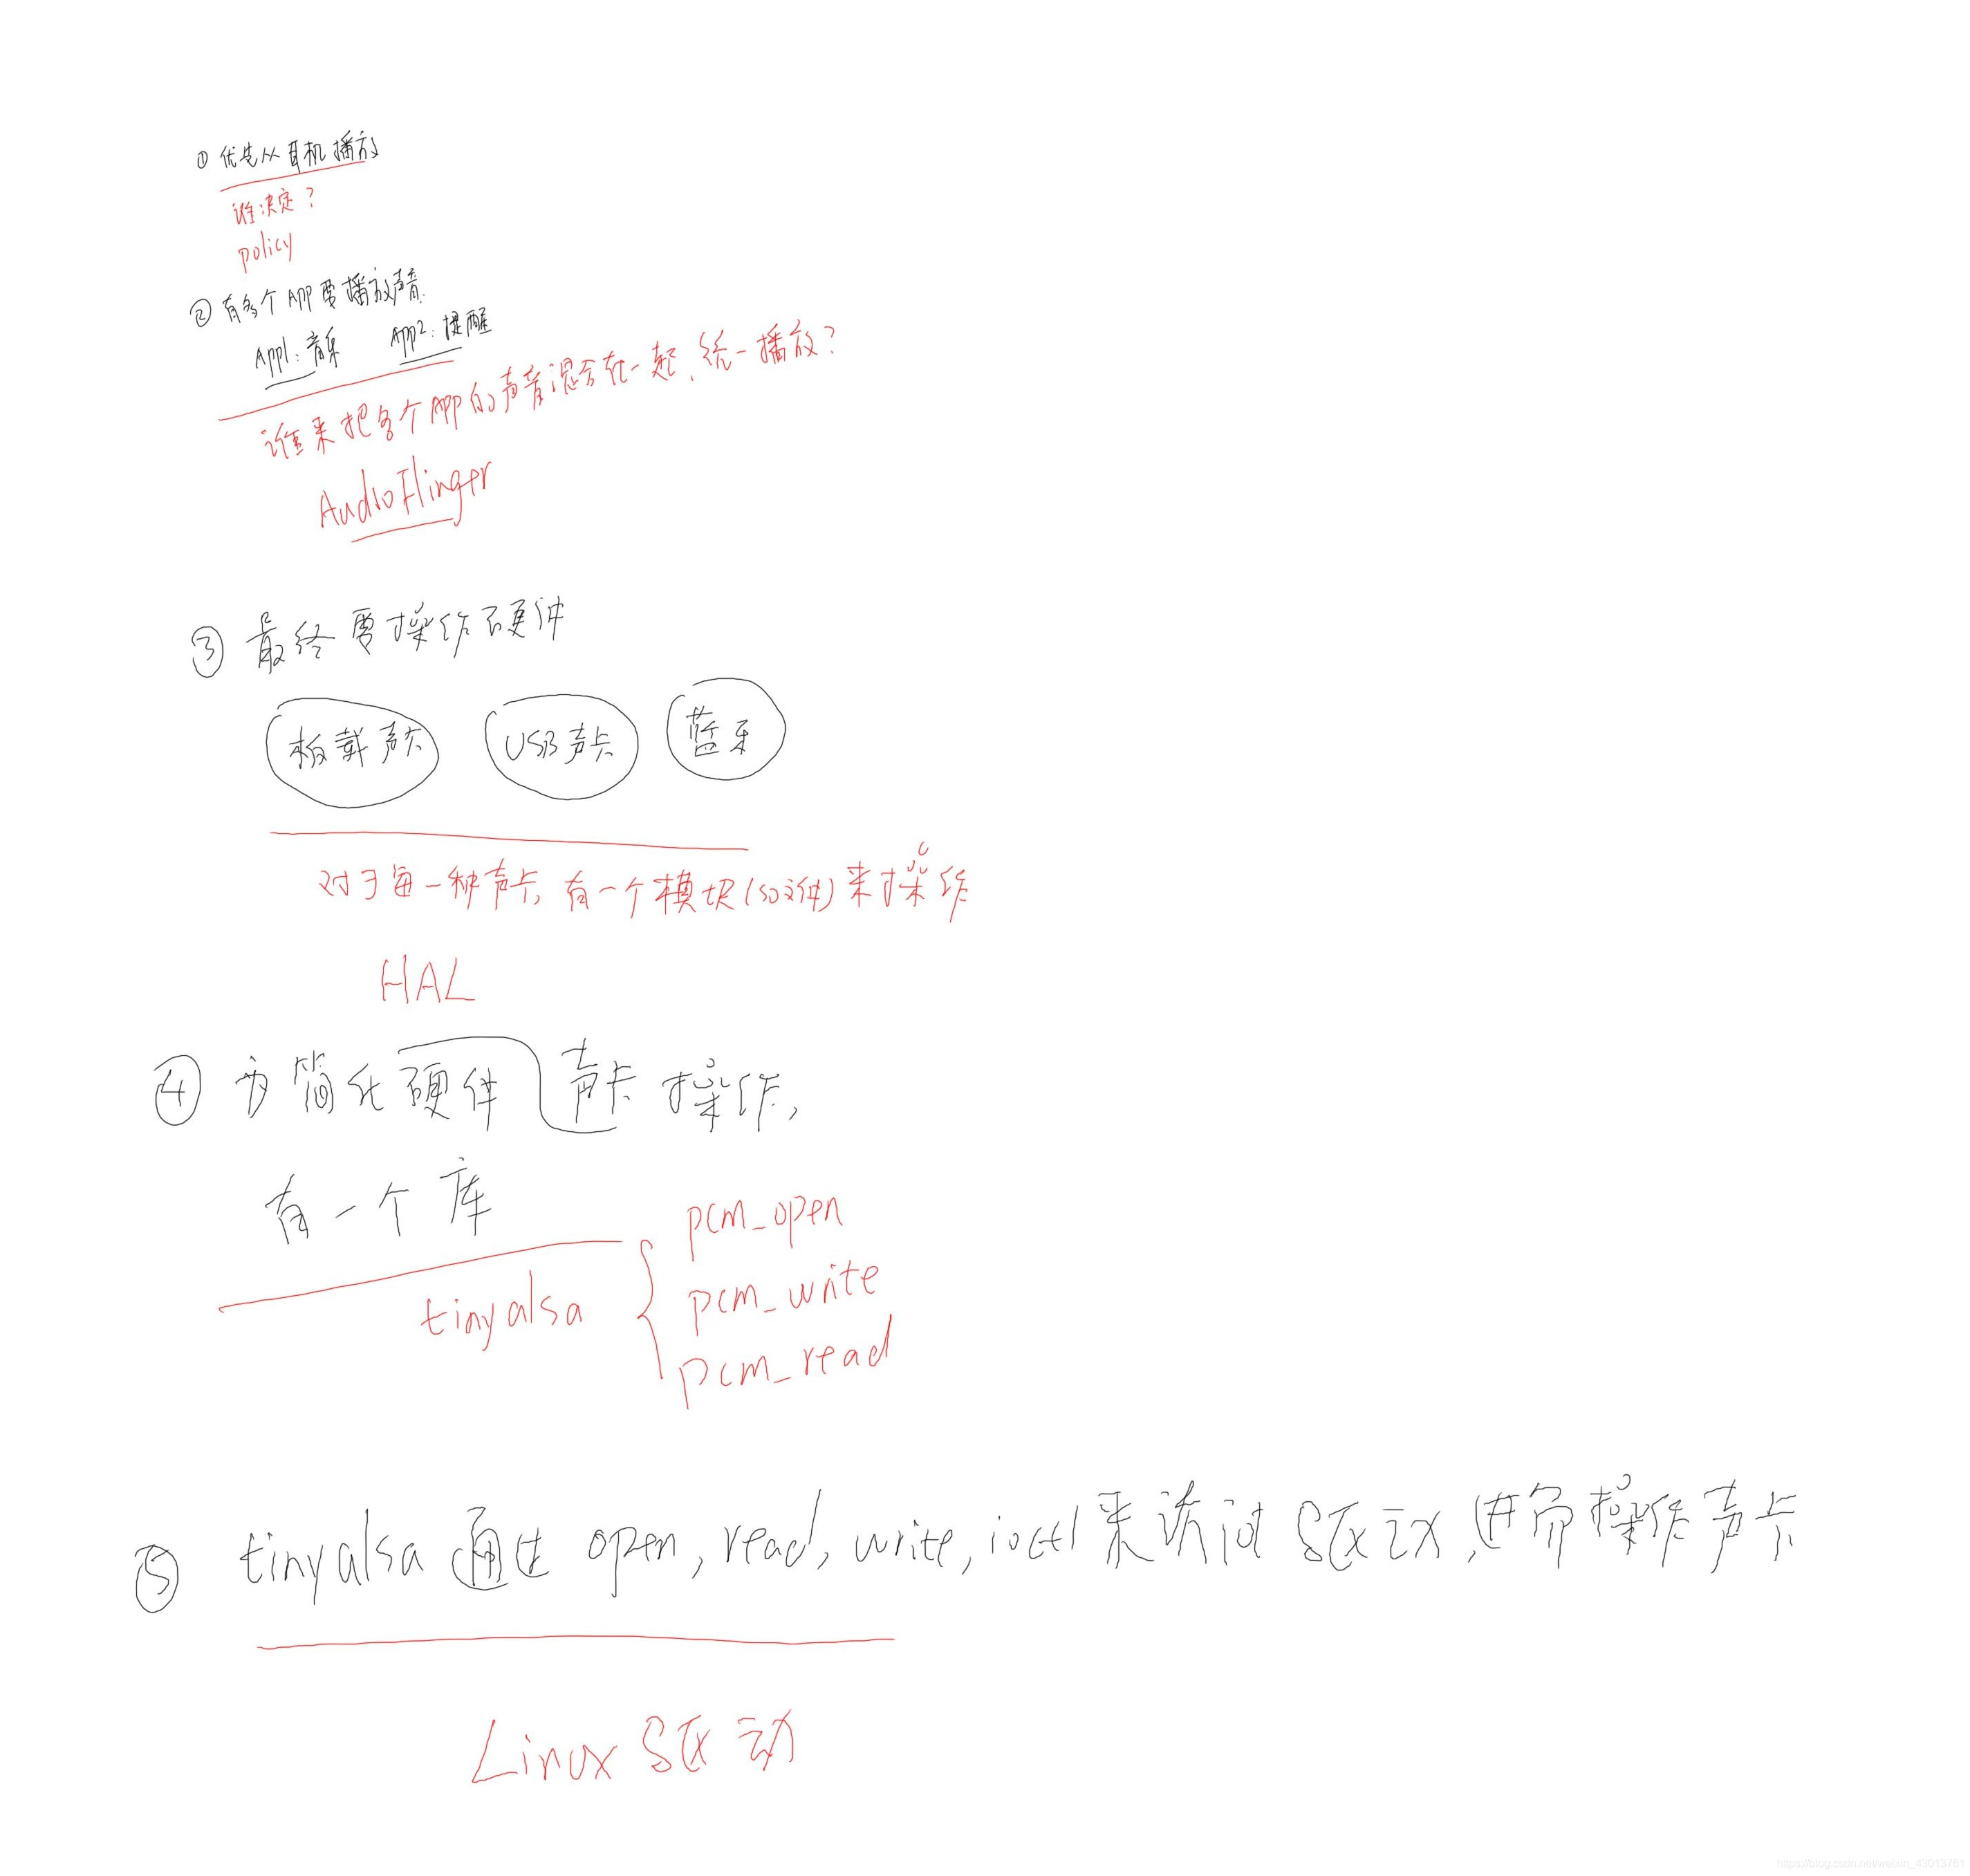 ① 优先从耳机播放
谁决定?
policy
② 有多个APP要播放声音.
App1:音乐 App2:提醒
谁来把各个APP的声音混合在一起,统一播放?
AudioFlinger
③ 最终要操作硬件
板载声卡 USB声卡 蓝牙
对于每一种声卡,有一个模块(so文件)来操作
HAL
④ 为简化硬件声卡操作,
有一个库
tinyalsa
pcm_open
pcm_write
pcm_read
⑤ tinyalsa通过 open, read, write, ioctl来访问驱动,进而操作声卡
Linux驱动
https://blog.csdn.net/weixin_43013761